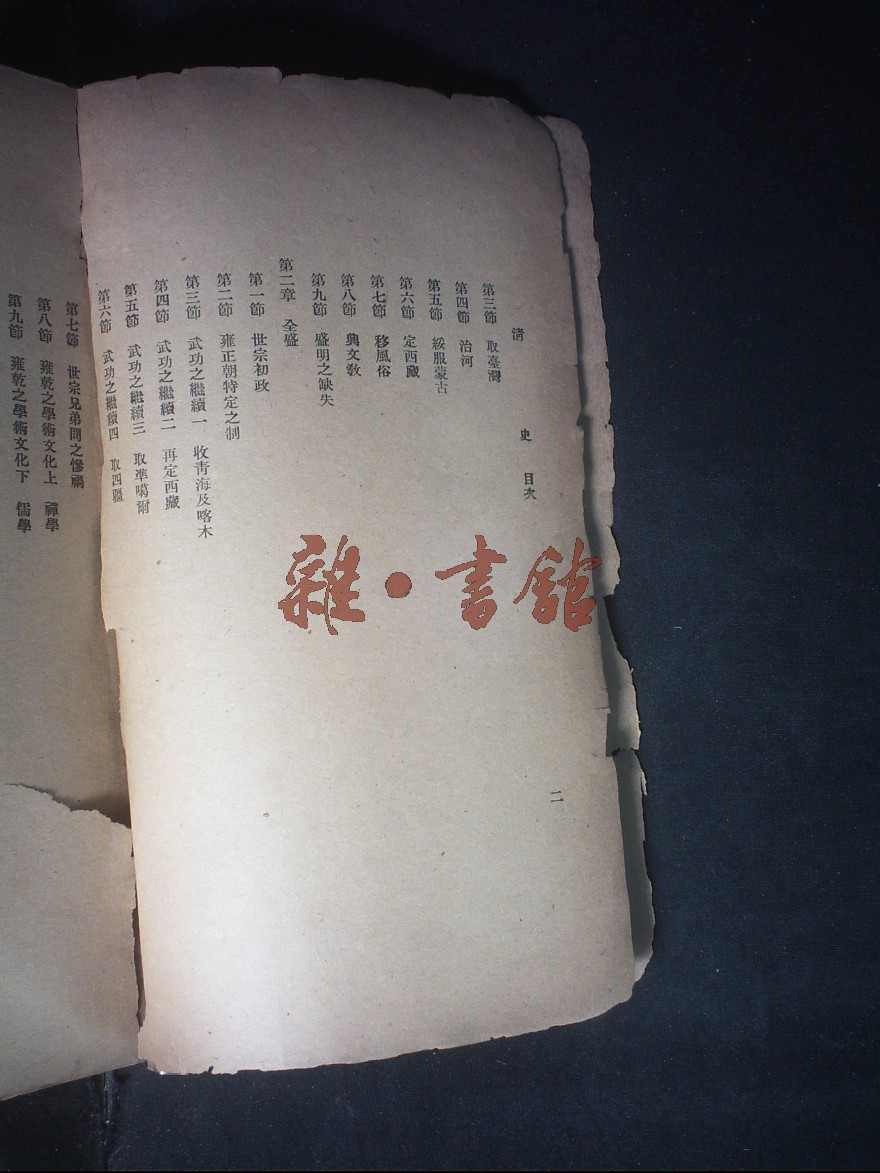 清史 目次
二
第三節 取臺灣
第四節 治河
第五節 綏服蒙古
第六節 定西藏
第七節 移風俗
第八節 興文教
第九節 盛明之缺失
第二章 全盛
第一節 世宗初政
第二節 雍正朝特定之制
第三節 武功之繼續一 收青海及喀木
第四節 武功之繼續二 再定西藏
第五節 武功之繼續三 取準噶爾
第六節 武功之繼續四 取回疆
第七節 世宗兄弟間之慘禍
第八節 雍乾之學術文化上 禪學
第九節 雍乾之學術文化下 儒學
雜·書館